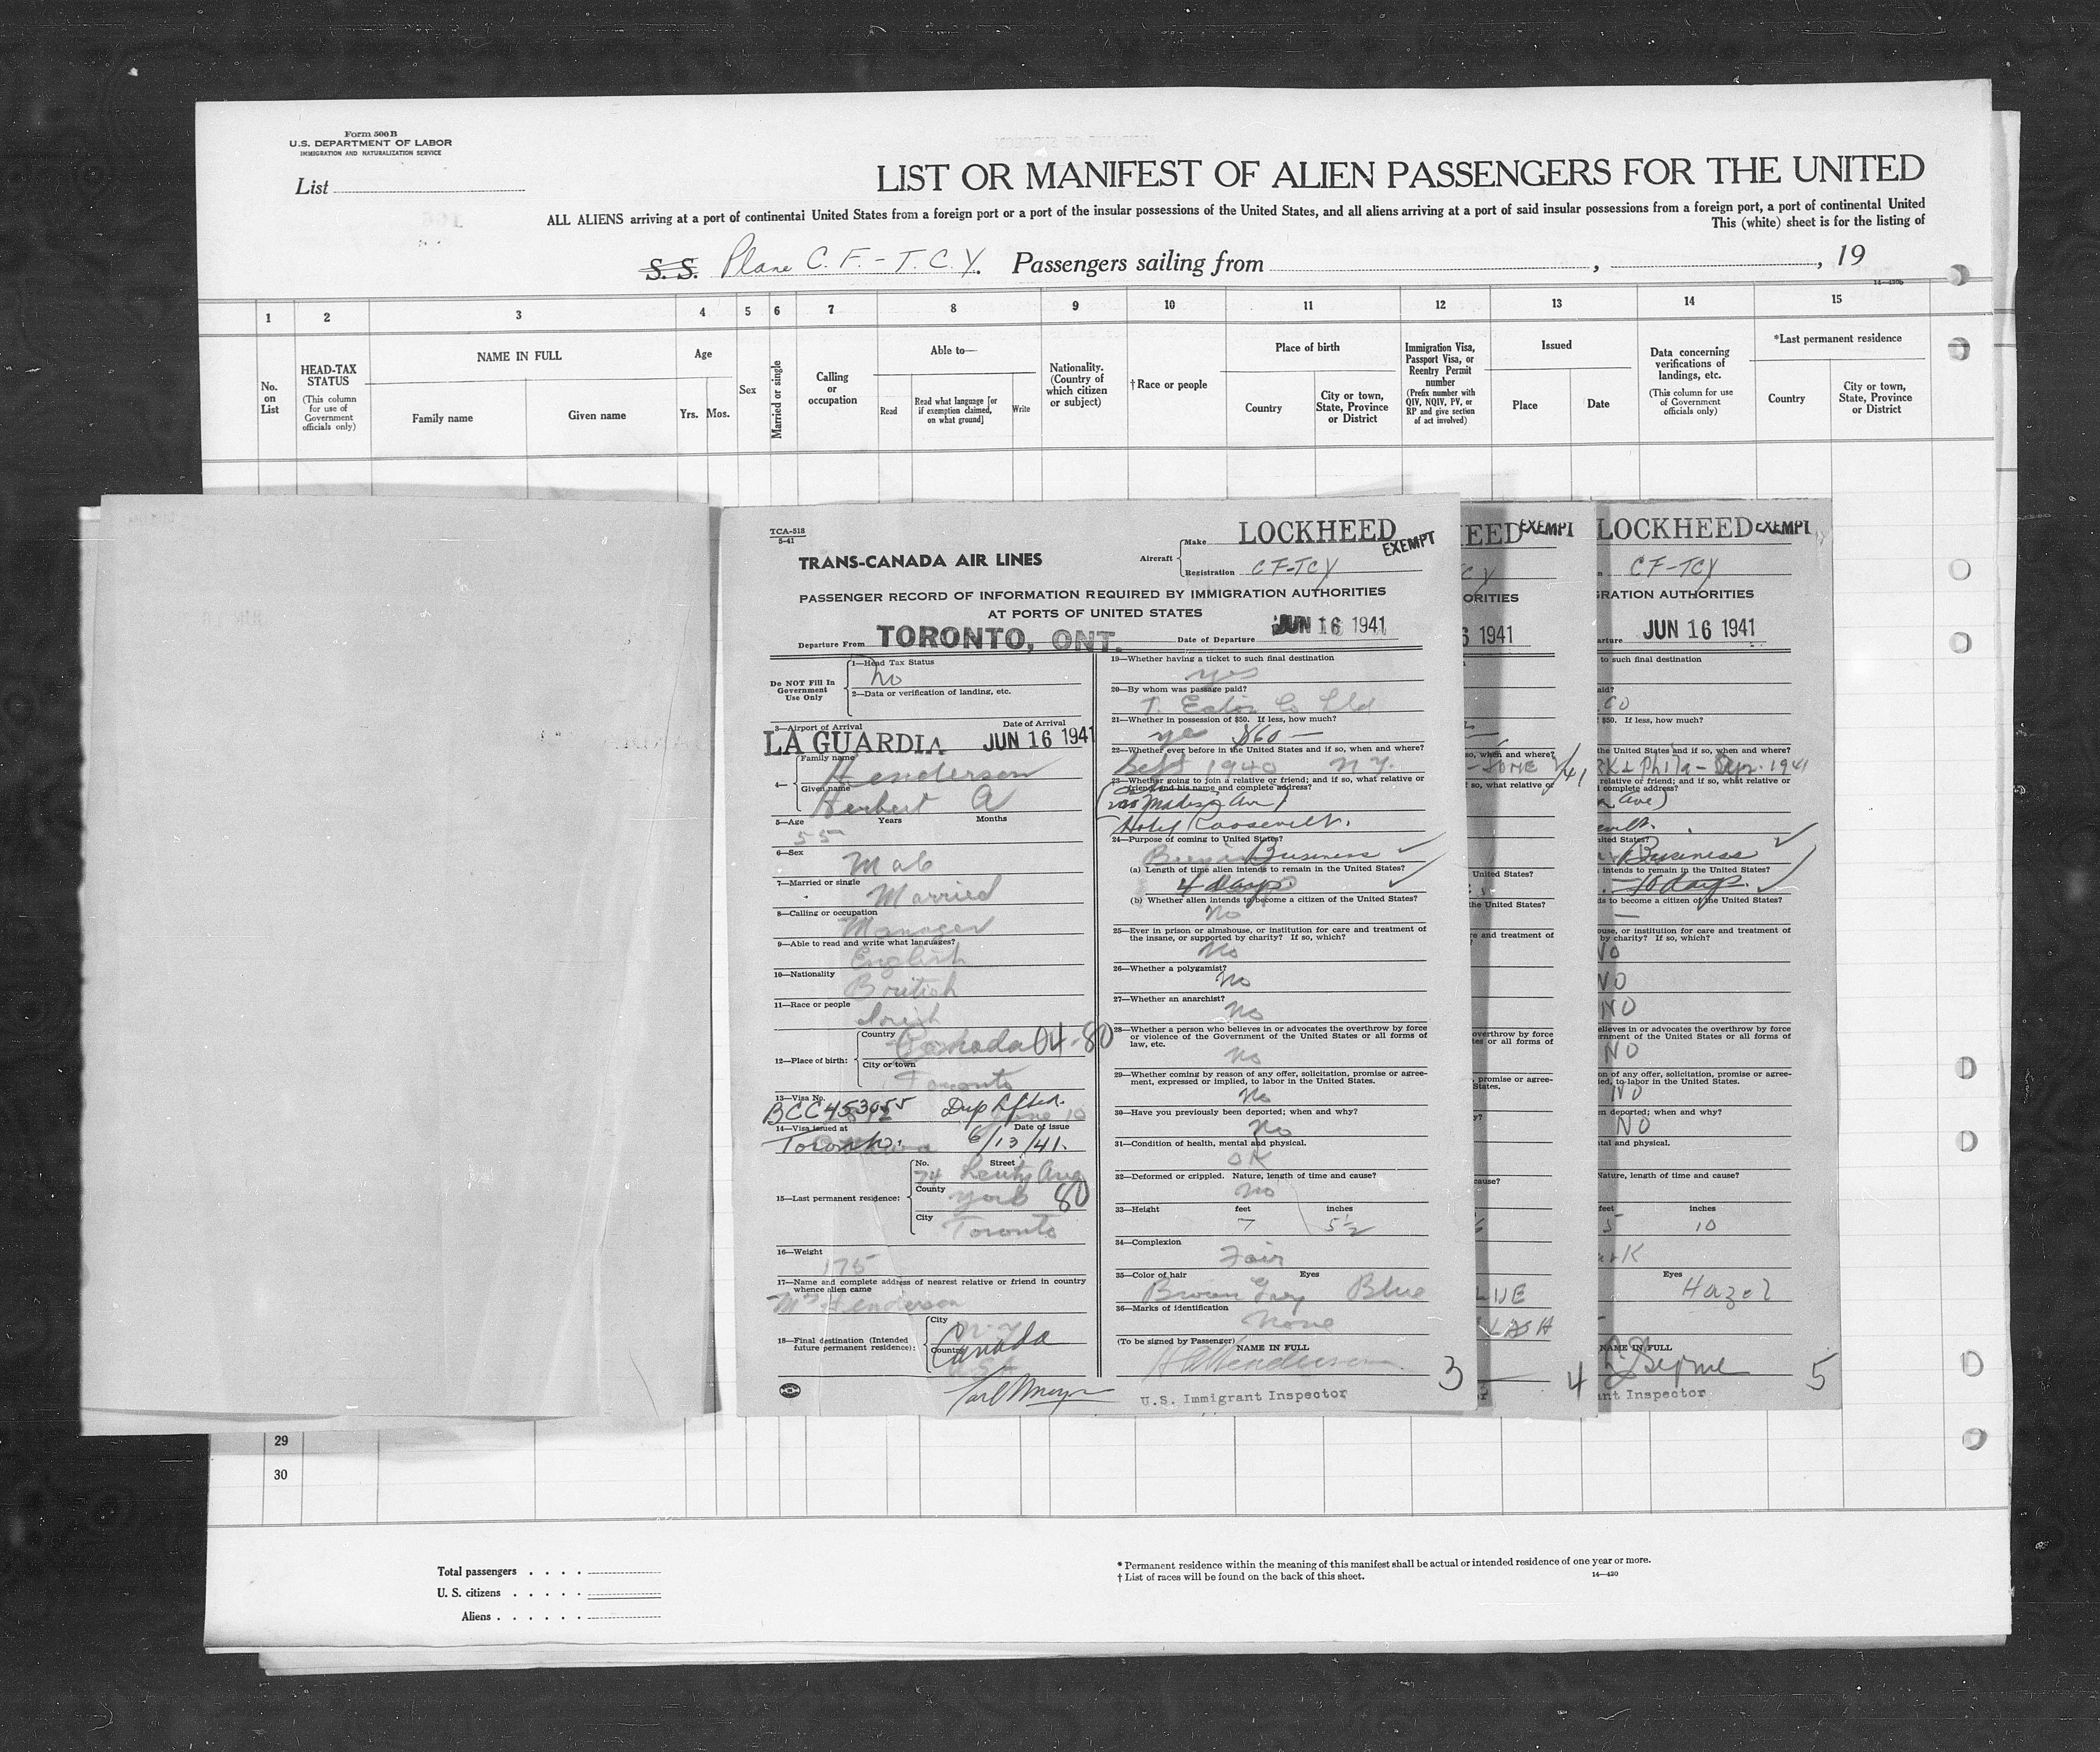 Form 500 B
U.S. DEPARTMENT OF LABOR
IMMIGRATION AND NATURALIZATION SERVICE
List
LIST OR MANIFEST OF ALIEN PASSENGERS FOR THE UNITED
ALL ALIENS arriving at a port of continental United States from a foreign port or a port of the insular possessions of the United States, and all aliens arriving at a port of said insular possessions from a foreign port, a port of continental United
This (white) sheet is for the listing of
S. S. Plane C. F. - T. C. Y. Passengers sailing from , , 19
1 2 3 4 5 6 7 8 9 10 11 12 13 14 15
No. on List
HEAD-TAX STATUS (This column for use of Government officials only)
NAME IN FULL
Family name Given name
Age
Yrs. Mos.
Sex
Married or single
Calling or occupation
Able to—
Read
Read what language [or if exemption claimed, on what ground]
Write
Nationality. (Country of which citizen or subject)
†Race or people
Place of birth
Country
City or town, State, Province or District
Immigration Visa, Passport Visa, or Reentry Permit number (Prefix number with QIV, NQIV, PV, or RP and give section of act involved)
Issued
Place Date
Data concerning verifications of landings, etc. (This column for use of Government officials only)
*Last permanent residence
Country
City or town, State, Province or District
TCA-518
5-41
TRANS-CANADA AIR LINES
Aircraft
Make LOCKHEED
EXEMPT
Registration CF-TCY
PASSENGER RECORD OF INFORMATION REQUIRED BY IMMIGRATION AUTHORITIES
AT PORTS OF UNITED STATES
Departure From TORONTO, ONT. Date of Departure JUN 16 1941
Do NOT Fill In Government Use Only
1—Head Tax Status
No
2—Data or verification of landing, etc.
3—Airport of Arrival Date of Arrival
LA GUARDIA JUN 16 1941
4— Family name
Henderson
Given name
Herbert A
5—Age Years Months
55
6—Sex
Male
7—Married or single
Married
8—Calling or occupation
Manager
9—Able to read and write what languages?
English
10—Nationality
British
11—Race or people
Irish
12—Place of birth:
Country
Canada 04-80
City or town
Toronto
13—Visa No.
BCC 453055 Dup lifted.
14—Visa issued at Date of issue
Toronto. 6/13/41.
15—Last permanent residence:
No. Street
74 Ave
County
York 80
City
Toronto
16—Weight
175
17—Name and complete address of nearest relative or friend in country whence alien came
Mrs Henderson
18—Final destination (Intended future permanent residence):
City
N.Y
Country
Canada
19—Whether having a ticket to such final destination
yes
20—By whom was passage paid?
T. Eaton Co Ltd
21—Whether in possession of $50. If less, how much?
yes $60 —
22—Whether ever before in the United States and if so, when and where?
Sept 1940 N.Y.
23—Whether going to join a relative or friend; and if so, what relative or friend and his name and complete address?
Madison Ave)
Hotel Roosevelt.
24—Purpose of coming to United States?
Business
(a) Length of time alien intends to remain in the United States?
4 days
(b) Whether alien intends to become a citizen of the United States?
No
25—Ever in prison or almshouse, or institution for care and treatment of the insane, or supported by charity? If so, which?
No
26—Whether a polygamist?
No
27—Whether an anarchist?
No
28—Whether a person who believes in or advocates the overthrow by force or violence of the Government of the United States or all forms of law, etc.
No
29—Whether coming by reason of any offer, solicitation, promise or agreement, expressed or implied, to labor in the United States.
No
30—Have you previously been deported; when and why?
No
31—Condition of health, mental and physical.
OK
32—Deformed or crippled. Nature, length of time and cause?
No
33—Height feet inches
7 5½
34—Complexion
Fair
35—Color of hair Eyes
Brown Grey Blue
36—Marks of identification
None
(To be signed by Passenger) NAME IN FULL
HA Henderson
U.S. Immigrant Inspector
3
EED EXEMPT
CY
ORITIES
6 1941
4
LOCKHEED EXEMPT
CF-TCY
RATION AUTHORITIES
JUN 16 1941
to such final destination
Co
$50. If less, how much?
the United States and if so, when and where?
& Phila - Sep. 1941
relative or friend; and if so, what relative or
complete address?
Ave)
United States?
Business
intends to remain in the United States?
10 days.
to become a citizen of the United States?
or institution for care and treatment of
by charity? If so, which?
NO
NO
NO
believes in or advocates the overthrow by force
of the United States or all forms of
NO
of any offer, solicitation, promise or agree-
to labor in the United States.
NO
deported; when and why?
NO
and physical.
Nature, length of time and cause?
feet inches
5 10
Eyes
Hazel
NAME IN FULL
Inspector
5
29
30
Total passengers
U. S. citizens
Aliens
* Permanent residence within the meaning of this manifest shall be actual or intended residence of one year or more.
† List of races will be found on the back of this sheet.
14—420